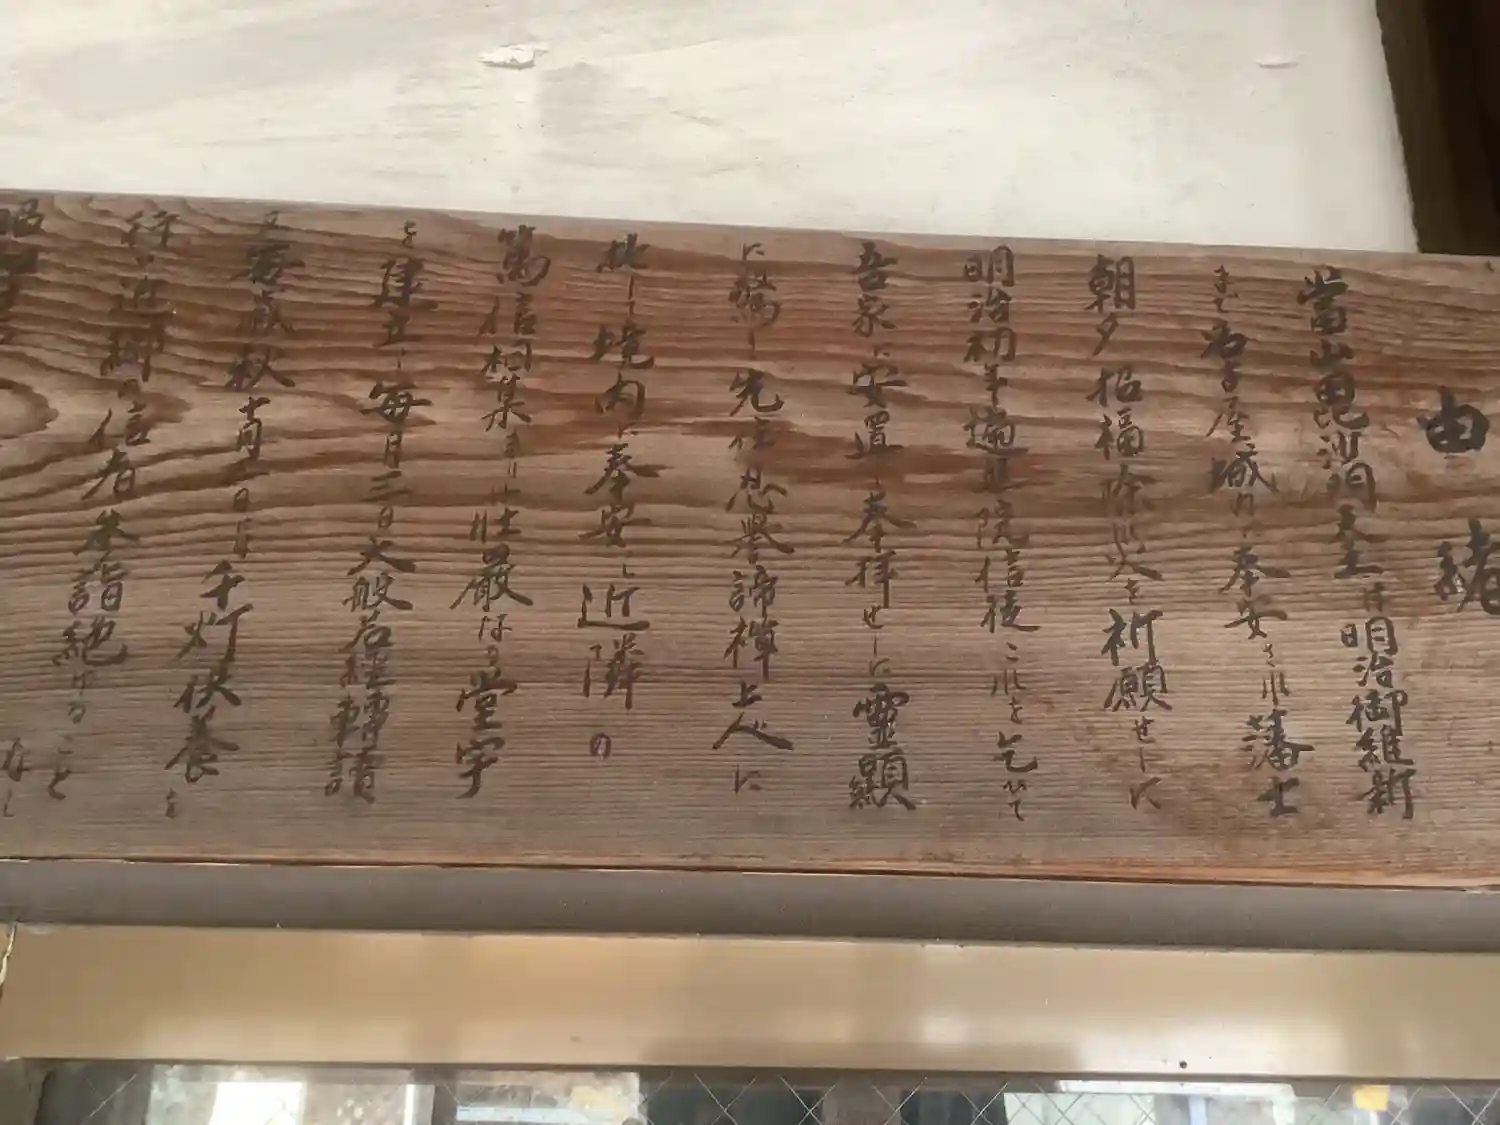 由緒
當山毘沙門天王は明治御維新
まで名古屋城内に奉安され藩士
朝夕招福除災を祈願せしに
明治初年遍照院信徒これを乞ひて
吾家に安置し奉拝せしに霊顯
に驚し先住忍譽諦禅上人に
して境内に奉安し近隣の
篤信相集まり壮厳なる堂宇
を建立し毎月三日大般若経轉讀
又毎歳秋十月三日には千灯供養を
行い近郷の信者参詣絶ゆることなし
昭和